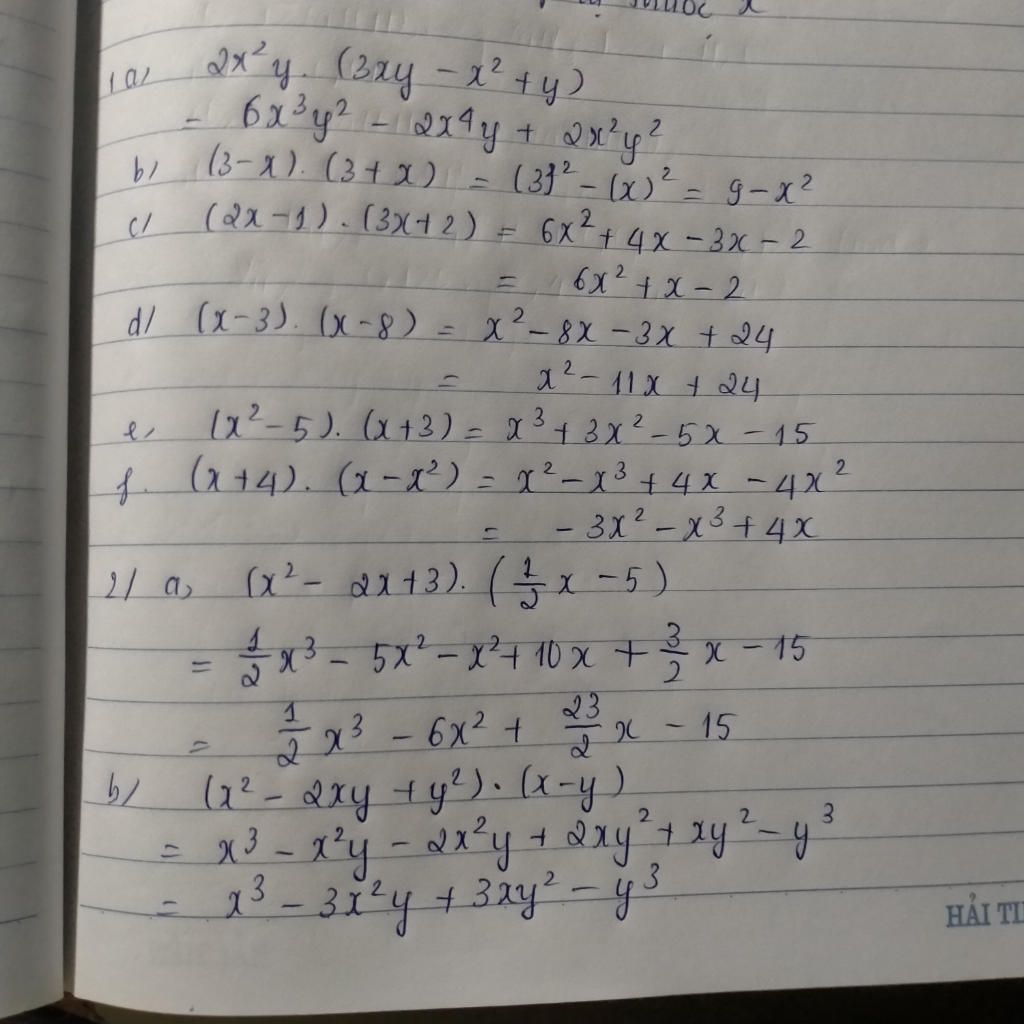 x
1a, 2x²y. (3xy − x² + y)
= 6x³y² − 2x⁴y + 2x²y²
b, (3−x). (3+x) = (3)² − (x)² = 9 − x²
c/ (2x−1).(3x+2) = 6x² + 4x − 3x − 2
= 6x² + x − 2
d/ (x−3). (x−8) = x² − 8x − 3x + 24
= x² − 11x + 24
e, (x²−5). (x+3) = x³ + 3x² − 5x − 15
f. (x+4). (x−x²) = x² − x³ + 4x − 4x²
= −3x² − x³ + 4x
2/ a, (x² − 2x+3). (1/2 x − 5)
= 1/2 x³ − 5x² − x² + 10x + 3/2 x − 15
= 1/2 x³ − 6x² + 23/2 x − 15
b/ (x² − 2xy + y²). (x−y)
= x³ − x²y − 2x²y + 2xy² + xy² − y³
= x³ − 3x²y + 3xy² − y³
HẢI